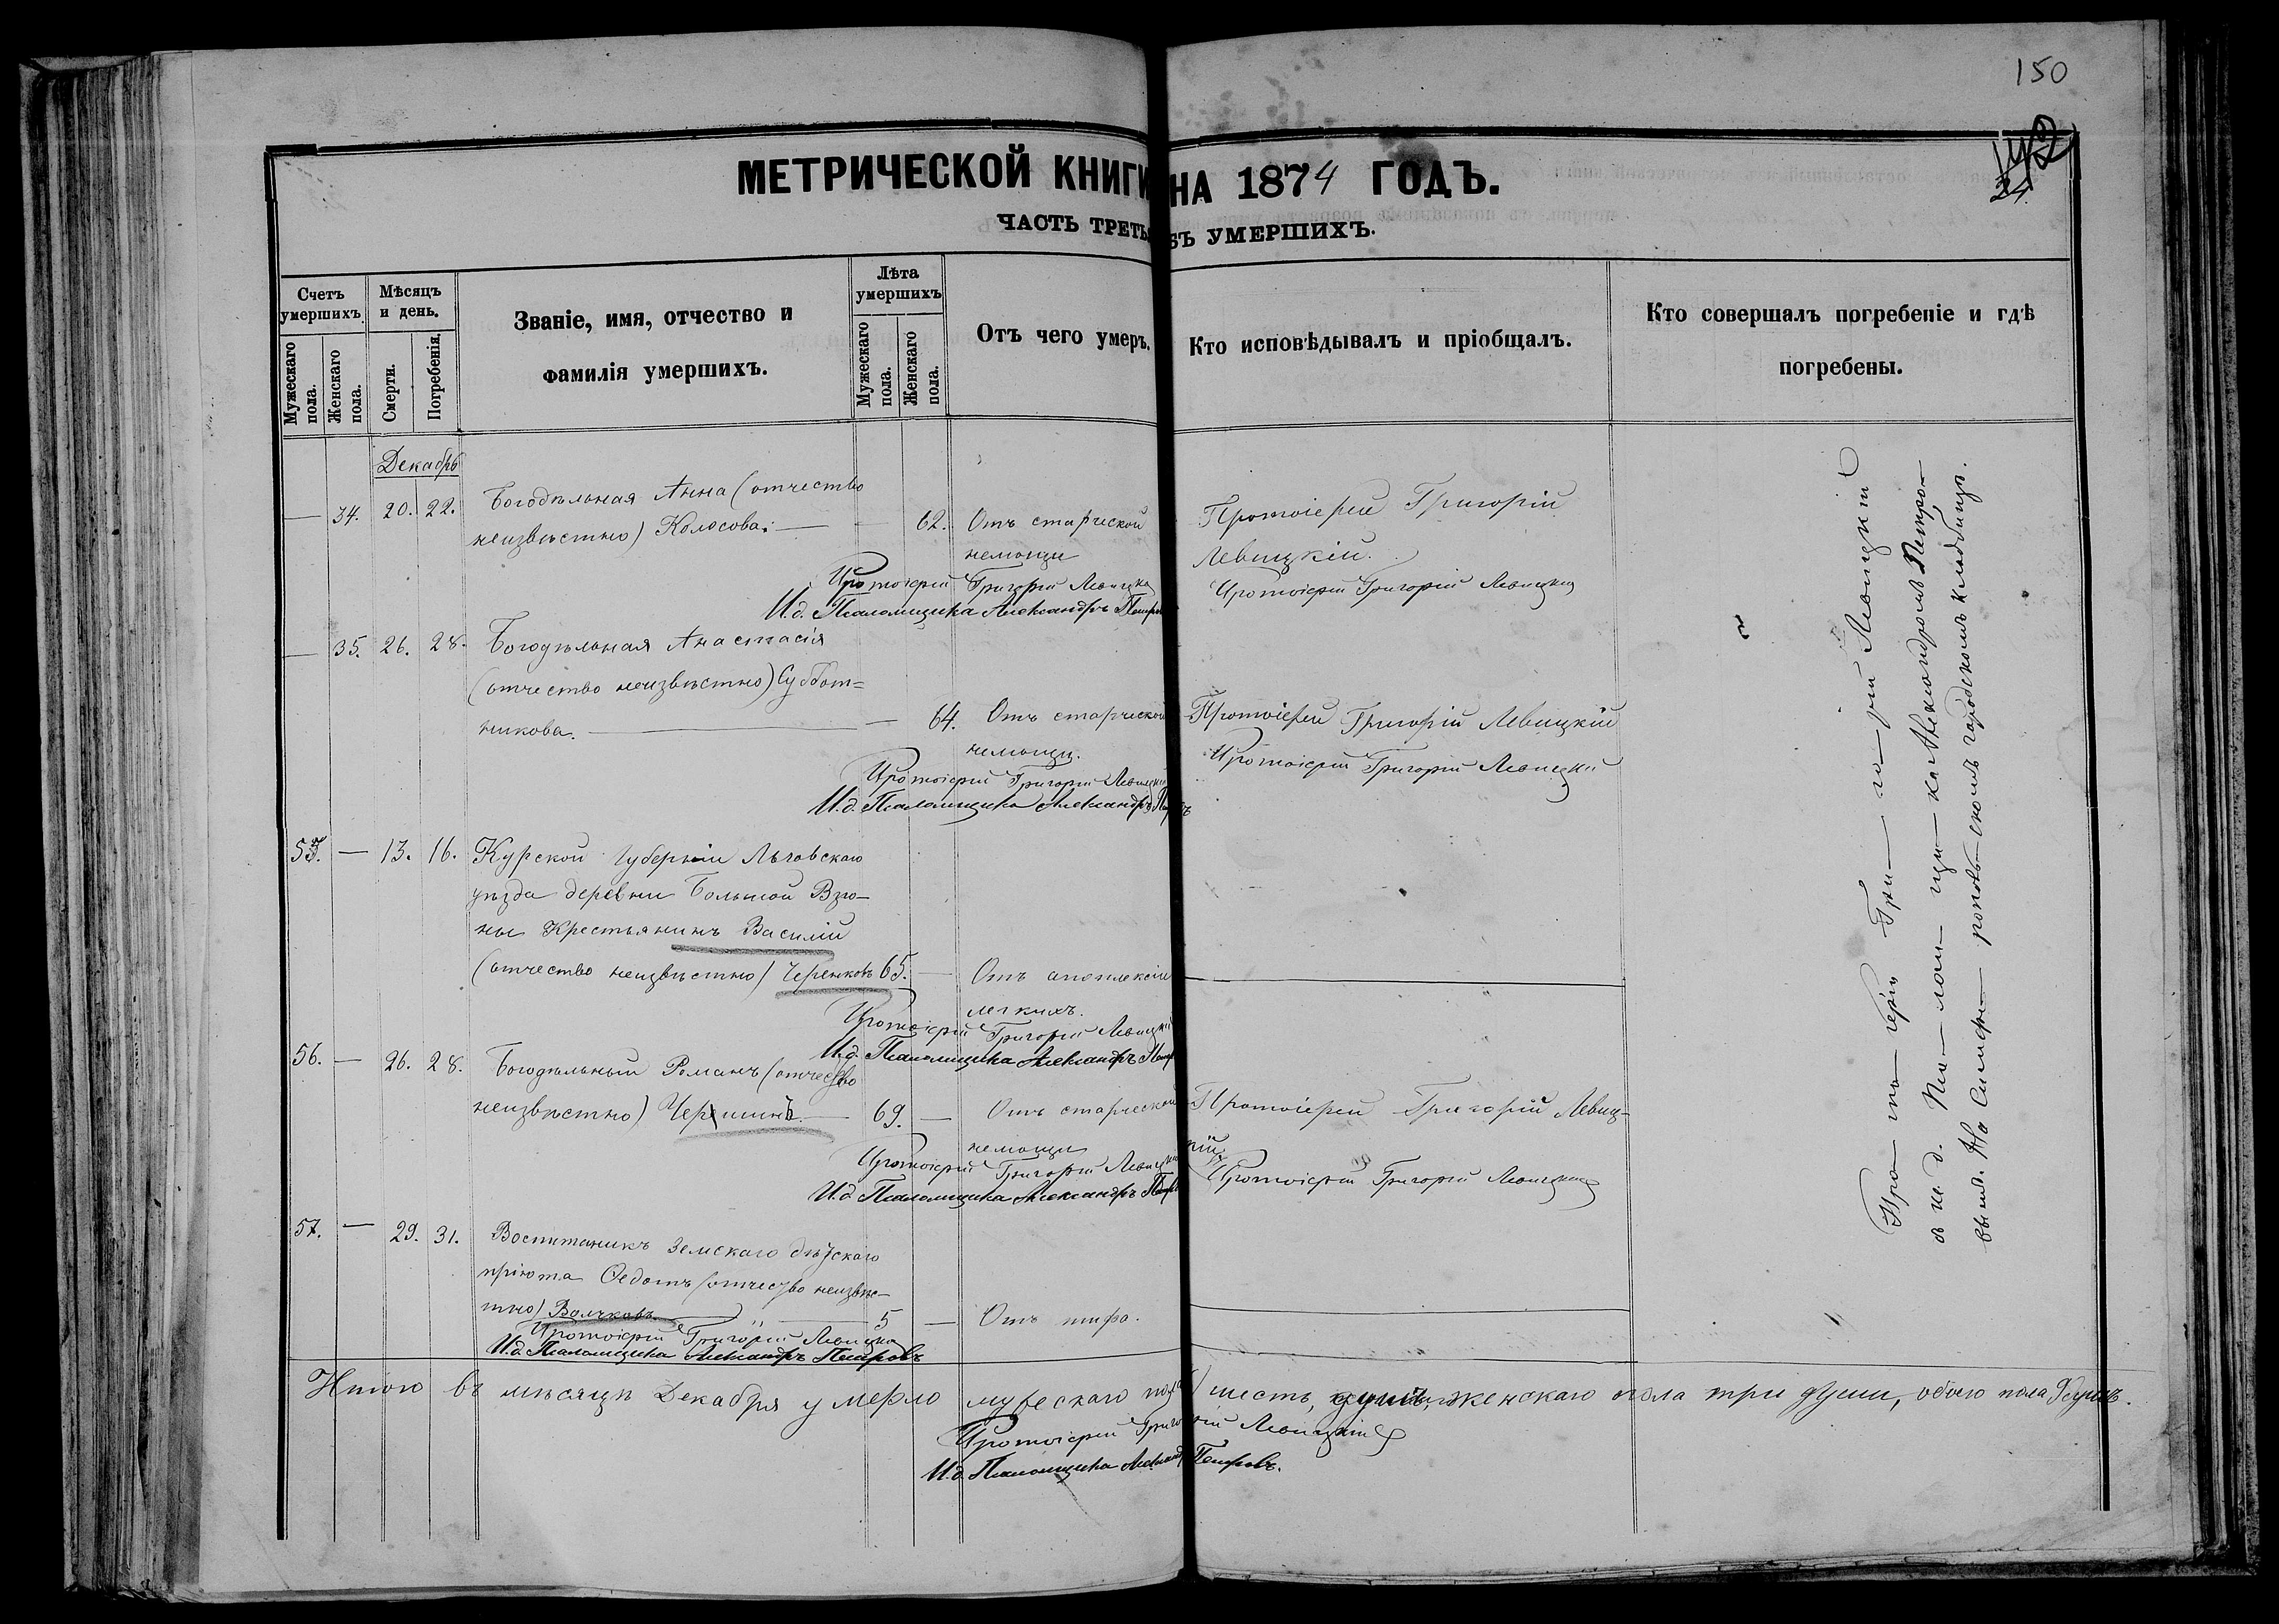 150
142
24.
МЕТРИЧЕСКОЙ КНИГИ НА 1874 ГОДЪ.
ЧАСТЬ ТРЕТЬ БЪ УМЕРШИХЪ.
Счетъ умершихъ.
Мужескаго пола.
Женскаго пола.
Мѣсяцъ и день.
Смерти.
Погребенія.
Званіе, имя, отчество и
фамилія умершихъ.
Лѣта умершихъ
Мужескаго пола.
Женскаго пола.
Отъ чего умеръ.
Кто исповѣдывалъ и пріобщалъ.
Кто совершалъ погребеніе и гдѣ
погребены.
Декабрь
— 34. 20. 22. Богодѣльная Анна (отчество
неизвѣстно) Колосова. — 62. Отъ старческой
немощи
Протоіерей Григорій Левицкій
И.д. Псаломщика Александръ Петровъ
Протоіерей Григорій
Левицкій.
Протоіерей Григорій Левицкій
— 35. 26. 28. Богодѣльная Анастасія
(отчество неизвѣстно) Суббот=
никова. — 64. Отъ старческой
немощи.
Протоіерей Григорій Левицкій
И.д. Псаломщика Александръ Петровъ
Протоіерей Григорій Левицкій
Протоіерей Григорій Левицкій
55. — 13. 16. Курской Губерніи Льговскаго
уѣзда деревни Большой Взго–
ны Крестьянинъ Василій
(отчество неизвѣстно) Черенковъ 65. — Отъ апоплексіи
легкихъ.
Протоіерей Григорій Левицкій
И.д. Псаломщика Александръ Петр
56. — 26. 28. Богодѣльный Романъ (отчество
неизвѣстно) — 69. — Отъ старческой
немощи
Протоіерей Григорій Левицкій
И.д. Псаломщика Александръ Петр
Протоіерей Григорій Левиц–
кій
Протоіерей Григорій Левицкій
57. — 29. 31. Воспитаникъ Земскаго дѣтскаго
пріюта Ѳедотъ (отчество неизвѣс–
тно) Волчковъ. — 5 — Отъ тифа.
Протоіерей Григорій Левицкій
И.д. Псаломщика Александръ Петровъ
Про–то–іерей Гри–го–рій Левицкій
съ и. д. Пса–лом–щи–ка Александромъ Петро–
вымъ. На Симфе–ропольскомъ городскомъ кладбищѣ.
Итого въ мѣсяцѣ Декабрѣ умерло мужескаго пола шесть, женскаго пола три души, обоего пола 9 душъ.
Протоіерей Григорій Левицкій
И.д. Псаломщика Александръ Петровъ.